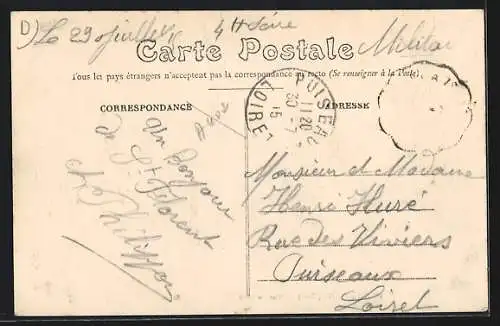 D) Le 29 Juillet
Carte Postale
Tous les pays étrangers n'acceptent pas la correspondance au recto (Se renseigner à la Poste).
CORRESPONDANCE
ADRESSE
PUISEAUX
11 20
30 - 7
15
LOIRET
Un Bonjour
de St Florent
Monsieur et Madame
Henri Huré
Rue des Viviers
Puiseaux
Loiret